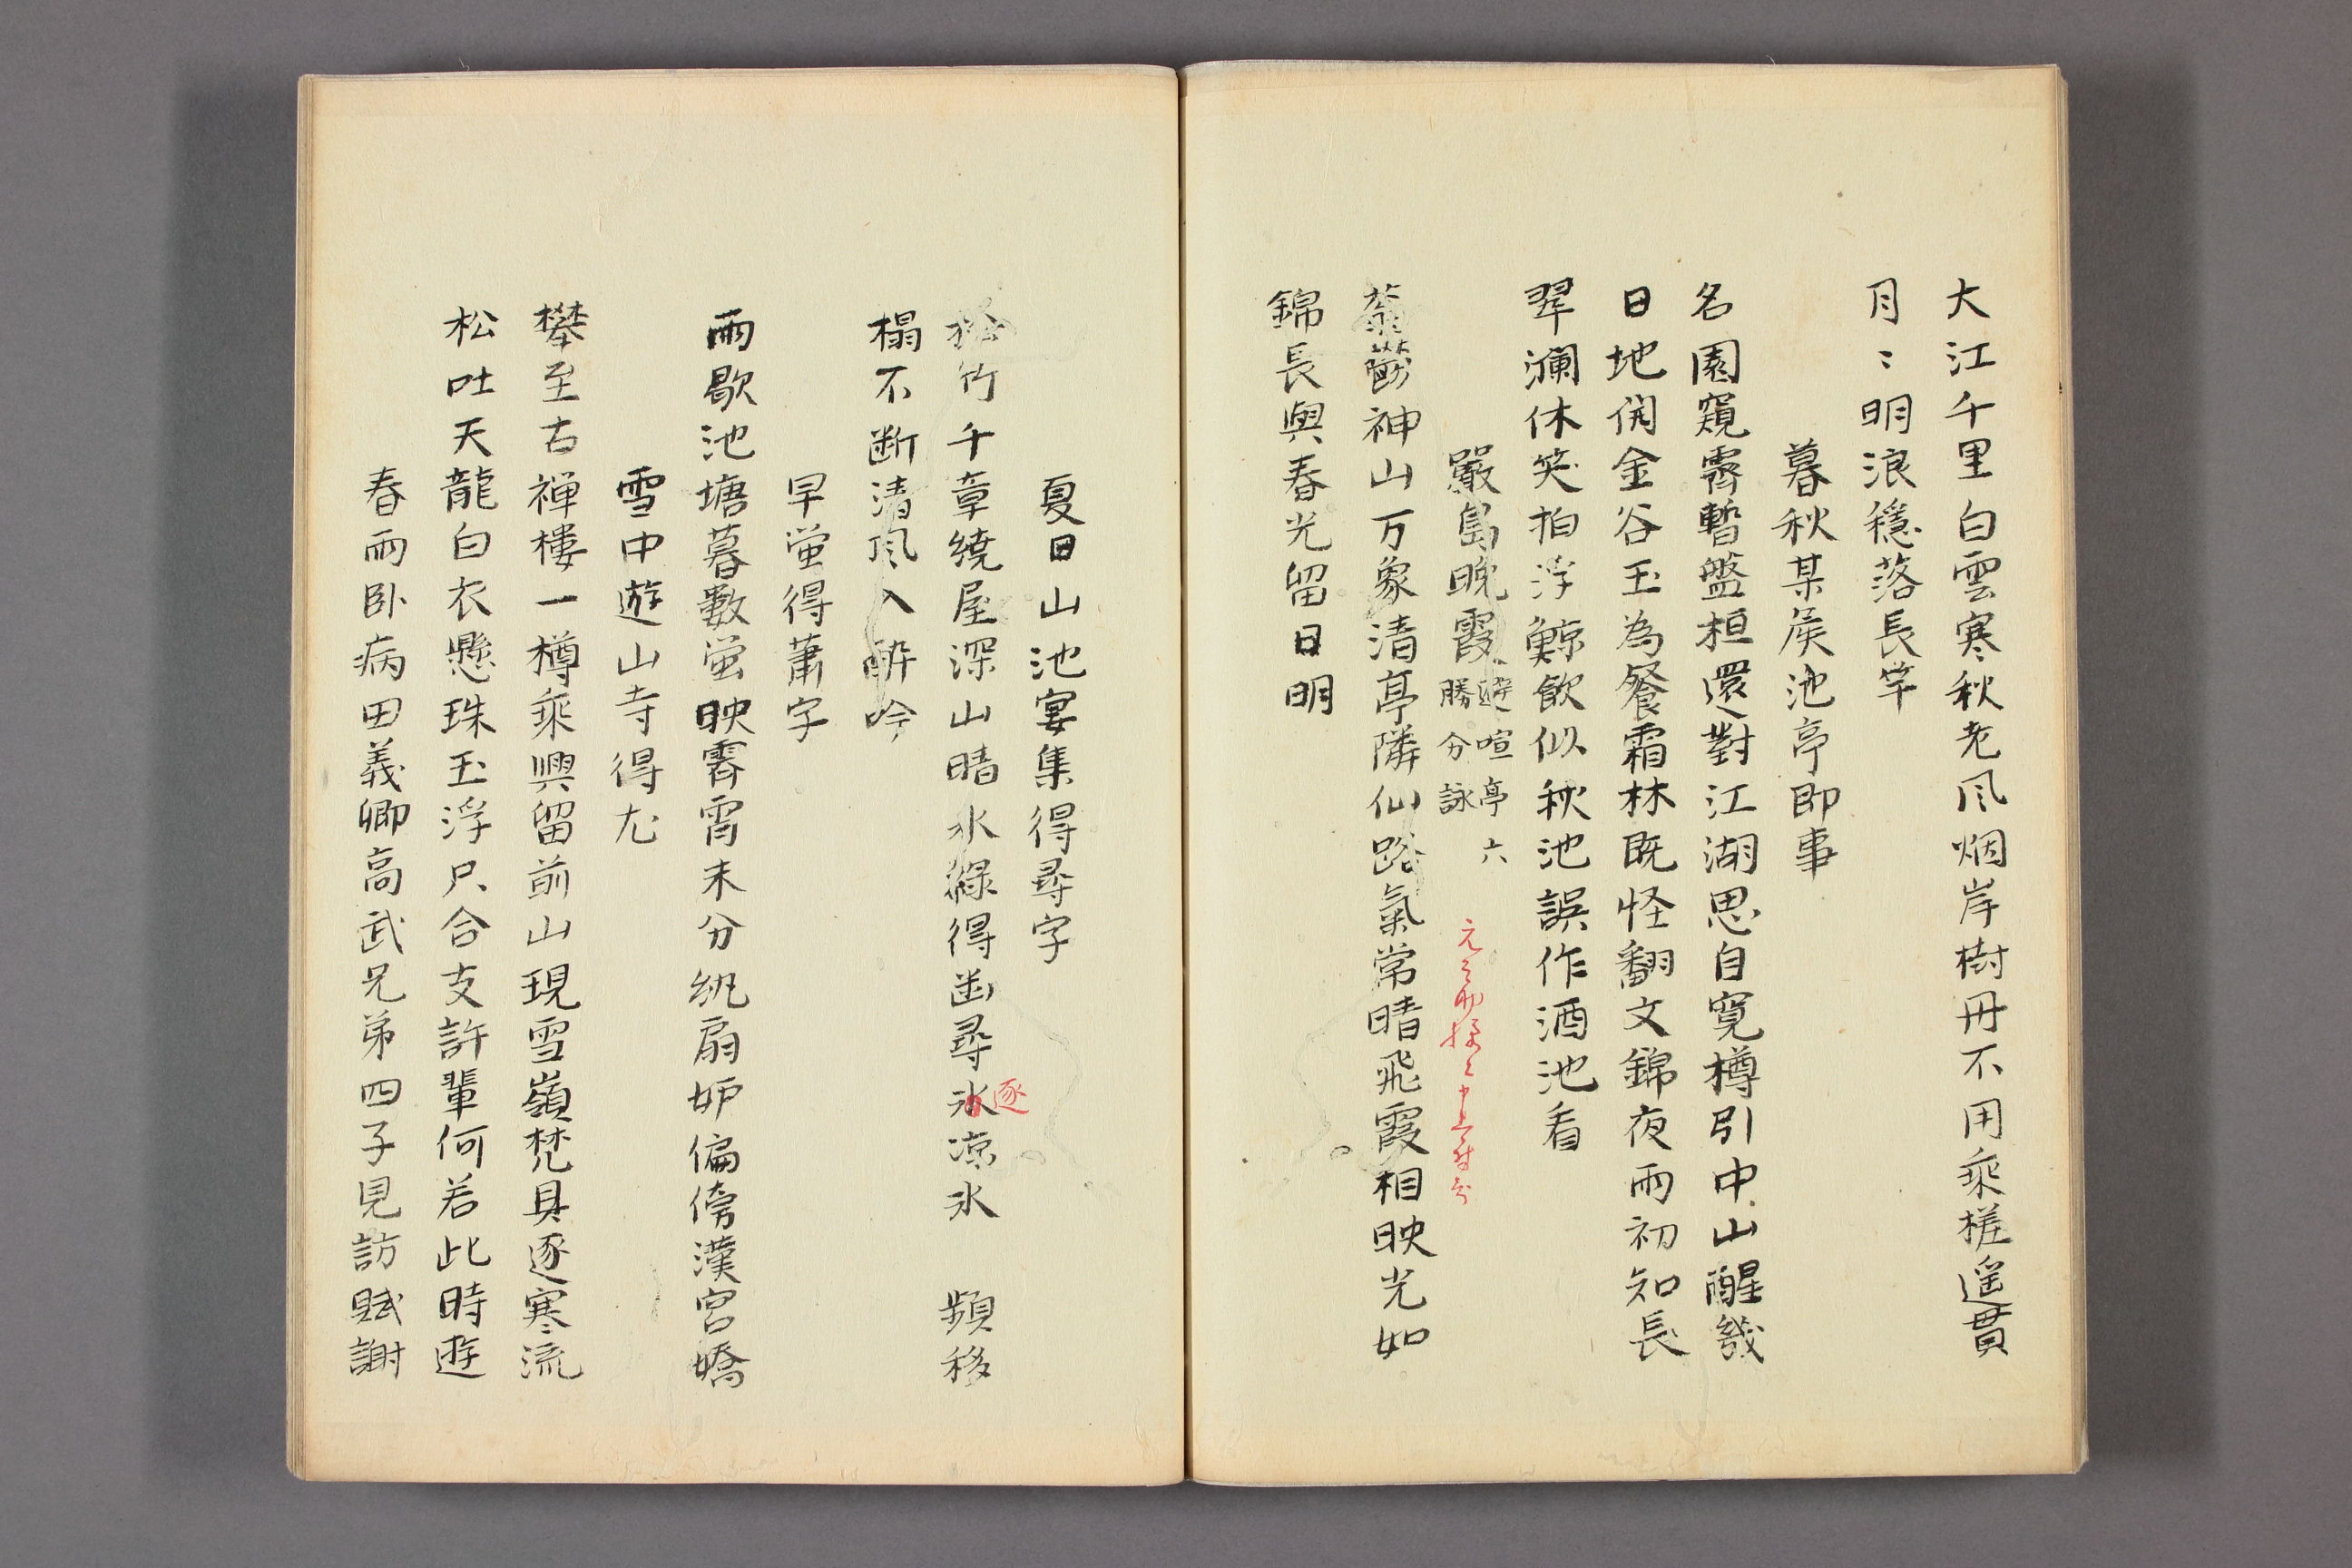 大江千里白雲寒秋老风烟岸樹丹不用乘槎遥貫
月〻明浪穩落長竿
暮秋某侯池亭即事
名園窺霽暫盤桓還對江湖思自寛樽引中山醒幾
日地開金谷玉為餐霜林既怪翻文錦夜雨初知長
翠瀾休笑拍浮鯨飲似秋池誤作酒池看
嚴島晚霞
避喧亭六
勝分詠
蓊鬱神山万象清亭隣仙路氣常晴飛霞相映光如
錦長與春光留日明
夏日山池宴集得尋字
松竹千章繞屋深山晴水綠得幽尋氷凉水 頻移
逐
榻不断清风入酔吟
早蛍得蕭字
雨歇池塘暮數蛍映霽霄末分紈扇妒偏傍漢宮嬌
雪中遊山寺得尤
攀至古禅樓一樽乘興留前山現雪嶺梵具逐寒流
松吐天龍白衣懸珠玉浮只合支許輩何若此時遊
春雨卧病田義卿高武兄弟四子見訪賦謝